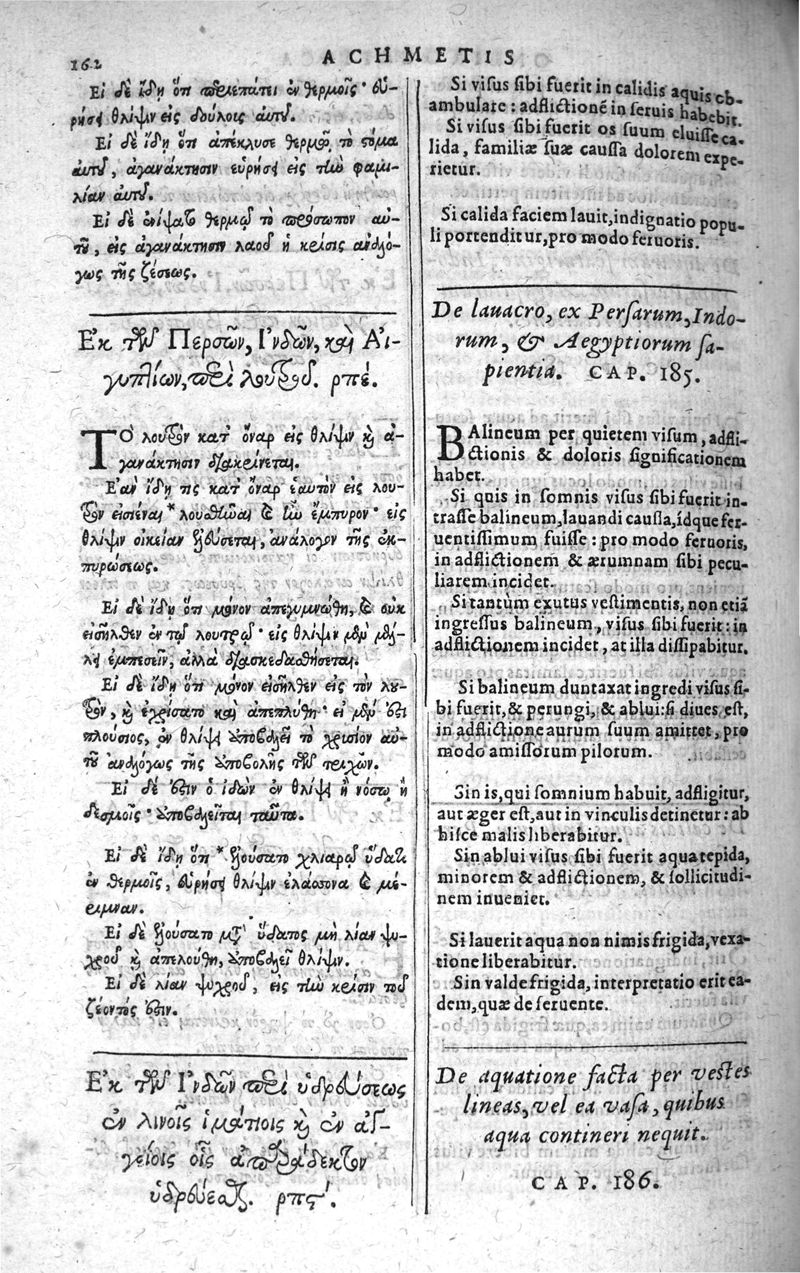 162
ACHMETIS
Εἰ δὲ ἴδῃ ὅτι περιεπάτει ἐν θερμοῖς· εὑ-
ρήσει θλίψιν εἰς δούλους αὐτοῦ.
Εἰ δὲ ἴδῃ ὅτι ἀπέκλυσε θερμῷ τὸ στόμα
αὐτοῦ, ἀγανάκτησιν εὑρήσει εἰς τὴν φαμι-
λίαν αὐτοῦ.
Εἰ δὲ ἐνίψατο θερμῷ τὸ πρόσωπον αὐ-
τοῦ, εἰς ἀγανάκτησιν λαοῦ ἡ κρίσις ἀναλό-
γως τῆς ζέσεως.
Ἐκ τῶν Περσῶν, Ἰνδῶν, καὶ Αἰ-
γυπτίων, περὶ λουτροῦ. ρπέ.
ΤΟ λουτρὸν κατ' ὄναρ εἰς θλίψιν καὶ ἀ-
γανάκτησιν διακρίνεται.
Ἐὰν ἴδῃ τις κατ' ὄναρ ἑαυτὸν εἰς λου-
τρὸν εἰσιέναι * λουθῆναι καὶ ἦν ἔμπυρον· εἰς
θλίψιν οἰκείαν ἥξεται, ἀνάλογον τῆς ἐκ-
πυρώσεως.
Εἰ δὲ ἴδῃ ὅτι μόνον ἀπεγυμνώθη, καὶ οὐκ
εἰσῆλθεν ἐν τῷ λουτρῷ· εἰς θλίψιν μὲν μέλ-
λει ἐμπεσεῖν, ἀλλὰ διασκεδασθήσεται.
Εἰ δὲ ἴδῃ ὅτι μόνον εἰσῆλθεν εἰς τὸν λου-
τρὸν, καὶ ἐχρίσατο καὶ ἀπεπλύθη· εἰ μὲν ἔστι
πλούσιος, ἐν θλίψει ὑποβαλεῖ τὸ χρυσίον αὐ-
τοῦ ἀναλόγως τῆς ὑποβολῆς τῶν τριχῶν.
Εἰ δὲ ἔστιν ὁ ἰδὼν ἐν θλίψει ἢ νόσῳ ἢ
δεσμοῖς· ὑποβαλεῖται ταῦτα.
Εἰ δὲ ἴδῃ ὅτι * ἐλούσατο χλιαρῷ ὕδατι
ἐν θερμοῖς, εὑρήσει θλίψιν ἐλάσσονα καὶ μέ-
ριμναν.
Εἰ δὲ ἐλούσατο μεθ' ὕδατος μὴ λίαν ψυ-
χροῦ καὶ ἀπελούθη, ὑποβαλεῖ θλίψιν.
Εἰ δὲ λίαν ψυχροῦ, εἰς τὴν κρίσιν τοῦ
ζέοντός ἔστιν.
Ἐκ τῶν Ἰνδῶν περὶ ὑδρεύσεως
ἐν λινοῖς ἱματίοις καὶ ἐν ἀγ-
γείοις οἷς ἀπαράδεκτον
ὑδρεύεσθαι. ρπϛ'.
Si visus sibi fuerit in calidis aquis ob-
ambulare: adflictionẽ in seruis habebit.
Si visus sibi fuerit os suum eluisse ca-
lida, familiæ suæ caussa dolorem expe-
rietur.
Si calida faciem lauit, indignatio popu-
li portenditur, pro modo feruoris.
De lauacro, ex Persarum, Indo-
rum, & Aegyptiorum sa-
pientia. CAP. 185.
BAlineum per quietem visum, adfli-
ctionis & doloris significationem
habet.
Si quis in somnis visus sibi fuerit in-
trasse balineum, lauandi caussa, ídque fer-
uentissimum fuisse: pro modo feruoris,
in adflictionem & ærumnam sibi pecu-
liarem incidet.
Si tantùm exutus vestimentis, non etiã
ingressus balineum, visus sibi fuerit: in
adflictionem incidet, at illa dissipabitur.
Si balineum duntaxat ingredi visus si-
bi fuerit, & perungi, & ablui: si diues est,
in adflictione aurum suum amittet, pro
modo amissorum pilorum.
Sin is, qui somnium habuit, adfligitur,
aut æger est, aut in vinculis detinetur: ab
hisce malis liberabitur.
Sin ablui visus sibi fuerit aqua tepida,
minorem & adflictionem, & sollicitudi-
nem inueniet.
Si lauerit aqua non nimis frigida, vexa-
tione liberabitur.
Sin valde frigida, interpretatio erit ea-
dem, quæ de feruente.
De aquatione facta per vestes
lineas, vel ea vasa, quibus
aqua contineri nequit.
CAP. 186.